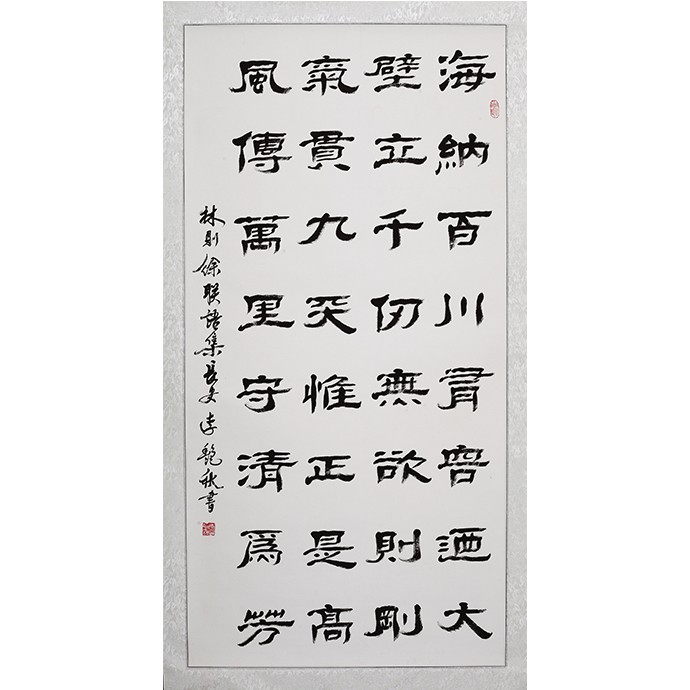 海納百川有容迺大
壁立千仞無欲則剛
氣貫九天惟正是高
風傳萬里守清爲芳
林则徐联語集長文李艳秋書